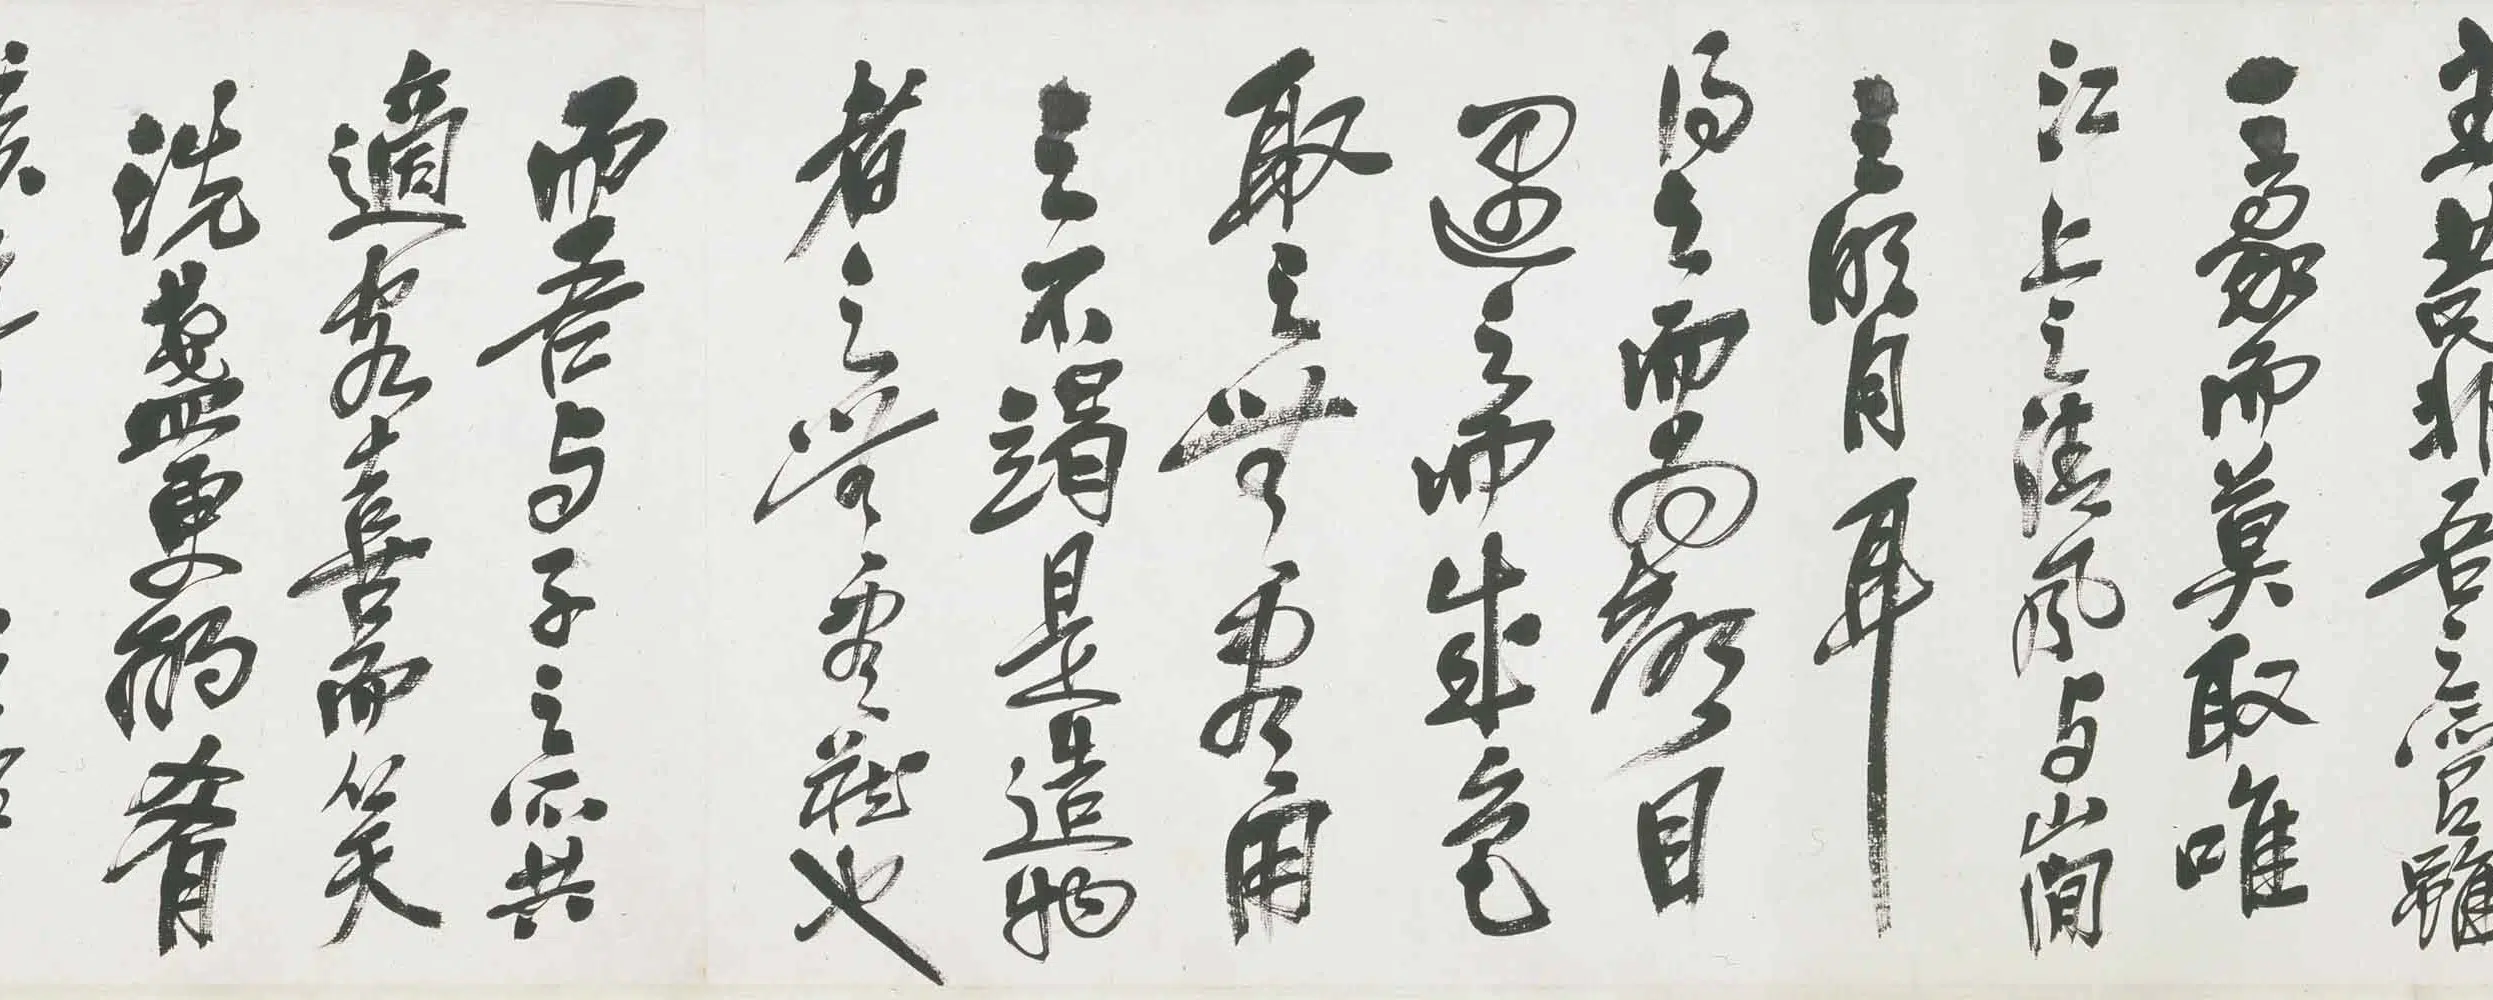 主苟非吾之所有雖
一毫而莫取唯
江上之清風与山間
之明月耳
得之而為聲目
遇之而成色
取之無盡用
之不竭是造物
者之無盡藏也
而吾与子之所共
適客喜而笑
洗盞更酌肴